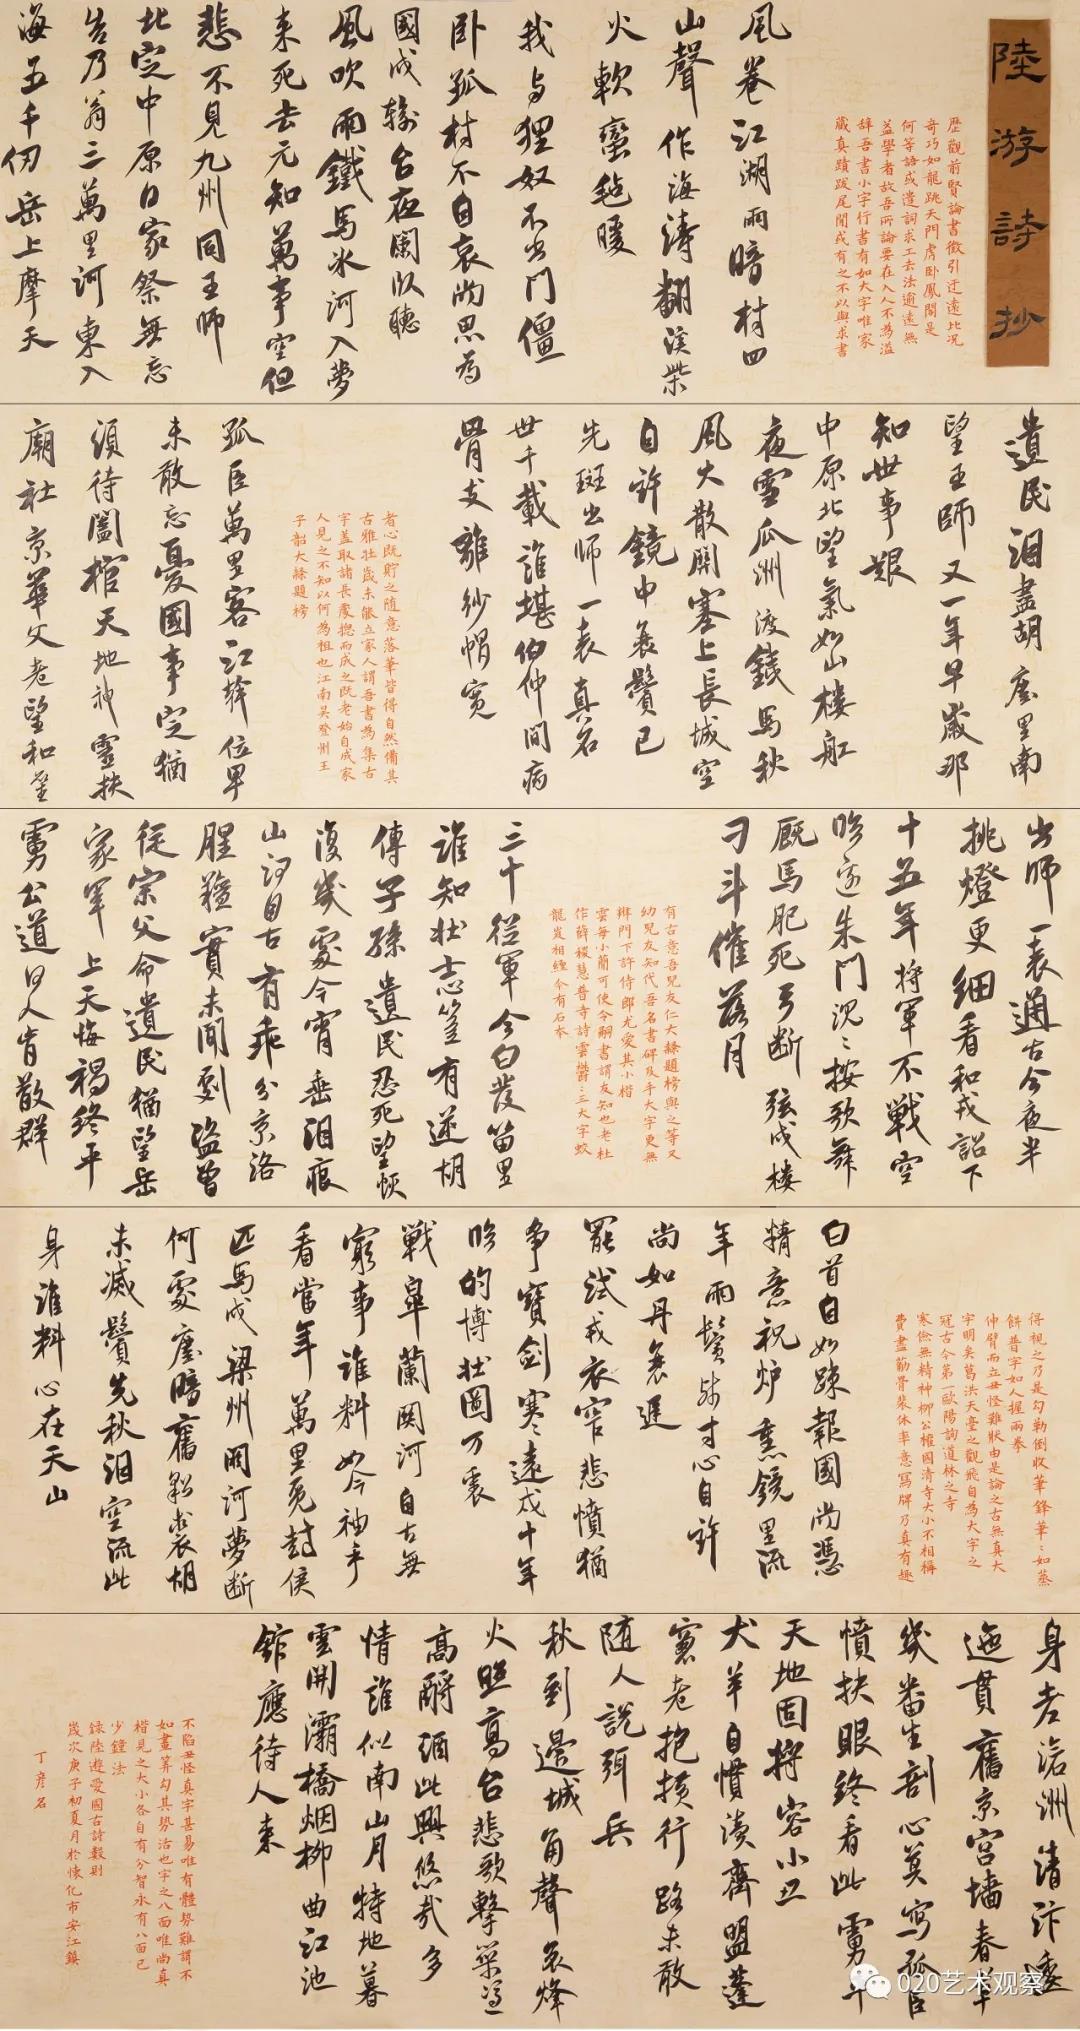 陸游詩抄
歷觀前賢論書徵引迂遠比況
奇巧如龍跳天門虎臥鳳閣是
何等語或遣詞求工去法逾遠無
益學者故吾所論要在入人不為溢
辭吾書小字行書有如大字唯家
藏真蹟跋尾閒或有之不以與求書
風卷江湖雨暗村四
山聲作海濤翻溪柴
火軟蠻氈暖
我與狸奴不出門僵
臥孤村不自哀尚思為
國戍輪台夜闌臥聽
風吹雨鐵馬冰河入夢
来死去元知萬事空但
悲不見九州同王師
北定中原日家祭無忘
告乃翁三萬里河東入
海五千仞岳上摩天
遺民淚盡胡塵里南
望王師又一年早歲那
知世事艱
中原北望氣如山樓船
夜雪瓜洲渡鐵馬秋
風大散關塞上長城空
自許鏡中衰鬢已
先斑出師一表真名
世千載誰堪伯仲間病
骨支離紗帽寬
者心既貯之隨意落筆皆得自然備其
古雅壯歲未能立家人謂吾書為集古
字蓋取諸長處總而成之既老始自成家
人見之不知以何為祖也江南吳登州王
子韶大隸題榜
孤臣萬里客江幹位卑
未敢忘憂國事定猶
須待闔棺天地神靈扶
廟社京華父老望和鑾
出師一表通古今夜半
挑燈更細看和戎詔下
十五年將軍不戰空
臨邊朱門沉沉按歌舞
廄馬肥死弓斷弦戍樓
刁斗催落月
有古意吾兒友仁大隸題榜與之等又
幼兒友知代吾名書碑及手大字更無
辨門下許侍郎尤愛其小楷
雲每小簡可使令嗣書謂友知也老杜
作薛稷慧普寺詩雲鬱鬱三大字蛟
龍岌相纏今有石本
三十從軍今白发笛里
誰知壯志篁有逆胡
傳子孫遺民忍死望恢
復幾處今宵垂淚痕
山河自古有乖分京洛
腥膻實未聞劇盜曾
從宗父命遺民猶望岳
家軍上天悔禍終平
虜公道何人肯散群
得視之乃是勾勒倒收筆鋒筆筆如蒸
餅普字如人握兩拳
伸臂而立丑怪難狀由是論之古無真大
字明矣葛洪天臺之觀飛白為大字之
冠古今第一歐陽詢道林之寺
寒儉無精神柳公權國清寺大小不相稱
費盡筋骨裴休率意寫牌乃真有趣
白首自如踈報國尚憑
精意祝炉熏鏡里流
年兩鬢殘寸心自許
尚如丹衰遲
罷試戎衣窄悲憤猶
爭寶劍寒遠戍十年
臨的博壯圖万里
戰皋蘭關河自古無
窮事誰料如今袖手
看當年萬里覓封侯
匹馬戍梁州關河夢斷
何處塵暗舊貂裘胡
未滅鬢先秋淚空流此
身誰料心在天山
身老滄洲清汴逶
迤貫舊京宮墻春草
幾番生剖心莫寫孤臣
憤抉眼終看此虜平
天地固將容小丑
犬羊自慣瀆齊盟蓬
窗老抱横行路未敢
随人說弭兵
秋到邊城角聲哀烽
火照高台悲歌擊築憑
高酹酒此興悠哉多
情誰似南山月特地暮
雲開灞橋烟柳曲江池
館應待人来
不陷丑怪真字甚易唯有體勢難謂不
如畫算勾其勢活也字之八面唯尚真
楷見之大小各自有分智永有八面已
少鍾法
録陸遊愛國古詩數則
歲次庚子初夏月於懷化市安江鎮
丁彦名
020艺术观察